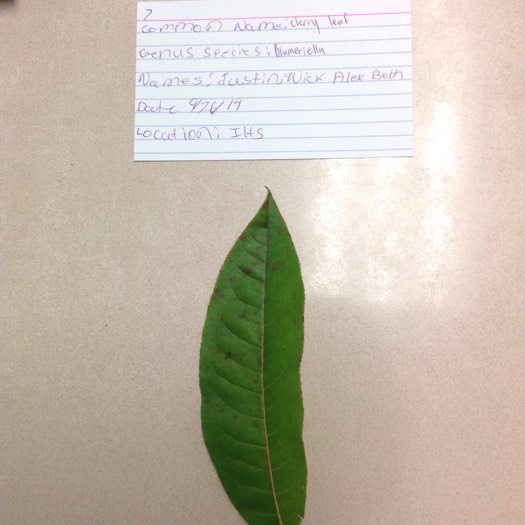 7
Common Name: cherry leaf
Genus species: blumeriella
Names: Justin, Nick Alex Beth
Date 9/26/14
Location: IHS